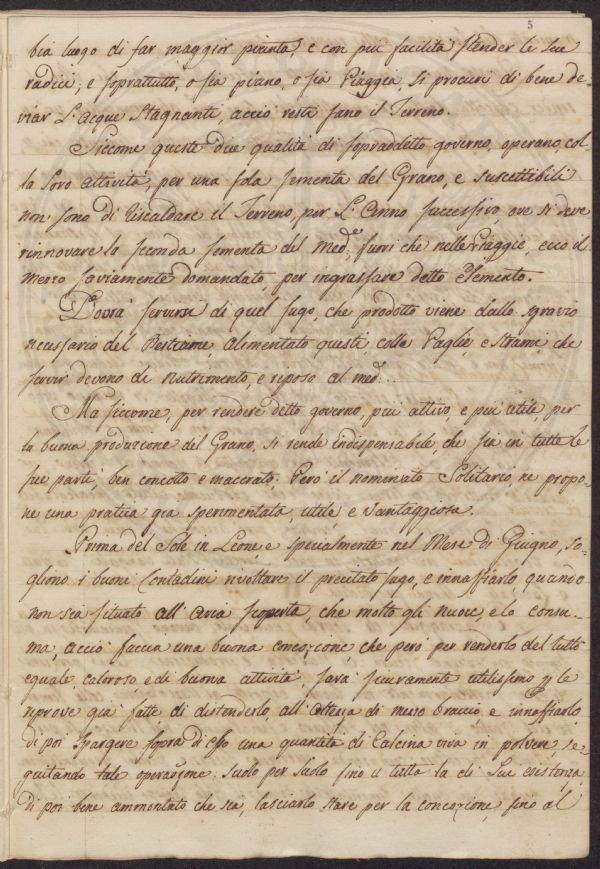 5
bia luogo di far maggior pianta, e con più facilità stender le sue
radici; e soprattutto, o sia piano, o sia Piaggia, si procuri di bene de-
viar L'acque Stagnanti, acciò resti sano il Terreno.
Siccome queste due qualità di sopraddetto governo, operano, col-
la loro attività, per una sola sementa del Grano, e suscettibili
non sono di riscaldare il Terreno, per L'Anno successivo, ove si deve
rinnovare la seconda sementa del med.º, fuori che nelle Piaggie, ecco il
mezzo saviamente domandato, per ingrassare detto Elemento.
Dovrà servirsi di quel sugo, che prodotto viene dallo sgravio
necessario del Bestiame, alimentato questi colle Paglie, e Strami, che
servir devono di nutrimento, e riposo al med.º..
Ma siccome, per rendere detto governo, più attivo e più utile, per
la buona produzione del Grano, si rende indispensabile, che sia in tutte le
sue parti, ben concotto e macerato; Però il nominato Solitario, ne propo-
ne una pratica già sperimentata, utile e Vantaggiosa.
Prima del Sole in Leone, e specialmente nel Mese di Giugno, so-
gliono i buoni Contadini rivoltare il precitato sugo, e innaffiarlo, quando
non sia situato all'aria scoperta, che molto gli nuoce, e lo consu-
ma, acciò faccia una buona concozione, che però per renderlo del tutto
eguale, caloroso, e di buona attività, sarà sicuramente utilissimo p le
riprove già fatte, di distenderlo, all'altezza di mezzo braccio, e innaffiarlo,
di poi Spargere sopra di esso una quantità di Calcina viva in polvere, se-
guitando tale operazione, suolo per suolo fino a tutta la di Lui esistenza,
di poi bene ammontato che sia, lasciarlo stare per la concozione, fino al